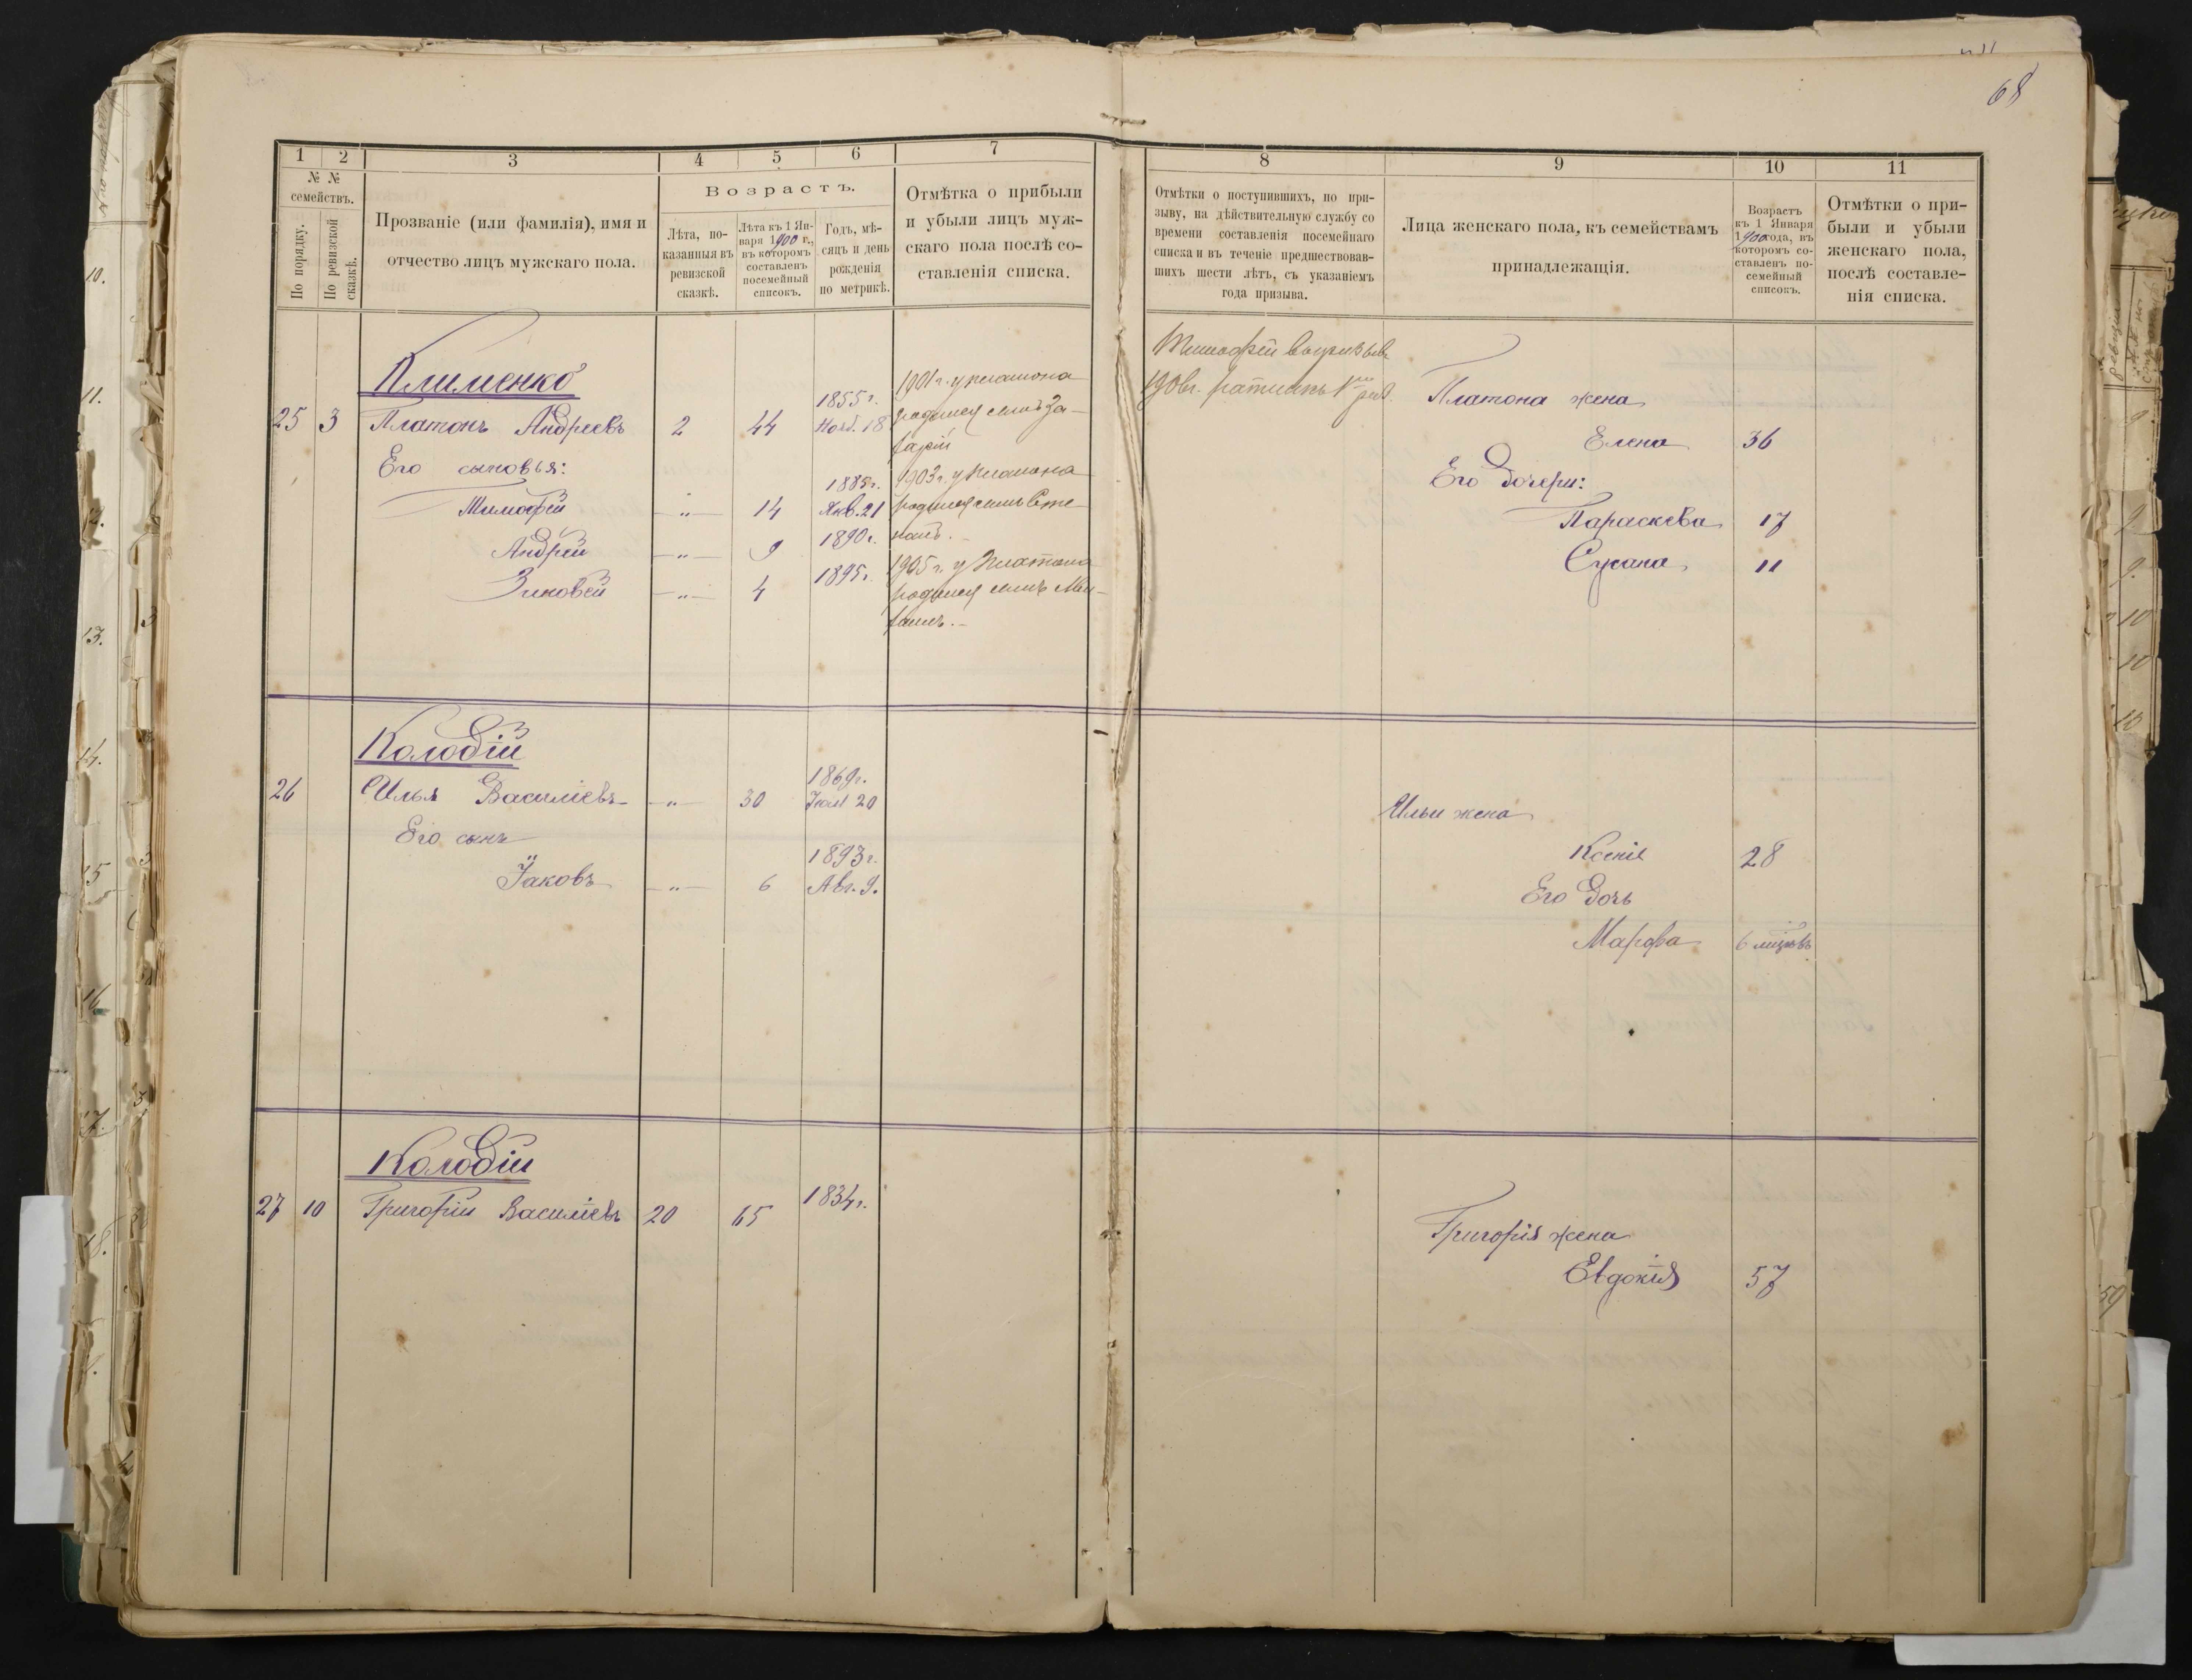 68
1
2
3
4
5
6
7
8
9
10
11
№ №
семействъ.
По порядку.
По ревизской
сказкѣ.
Прозваніе (или фамилія), имя и
отчество лицъ мужскаго пола.
Возрастъ.
Лѣта, по-
казанныя въ
ревизской
сказкѣ.
Лѣта къ 1 Ян-
варя 1900 г.,
въ которомъ
составленъ
посемейный
списокъ.
Годъ, мѣ-
сяцъ и день
рожденія
по метрикѣ.
Отмѣтка о прибыли
и убыли лицъ муж-
скаго пола послѣ со-
ставленія списка.
Отмѣтки о поступившихъ, по при-
зыву, на дѣйствительную службу со
времени составленія посемейнаго
списка и въ теченіе предшествовав-
шихъ шести лѣтъ, съ указаніемъ
года призыва.
Лица женскаго пола, къ семействамъ
принадлежащія.
Возрастъ
къ 1 Января
1900 года, въ
которомъ со-
ставленъ по-
семейный
списокъ.
Отмѣтки о при-
были и убыли
женскаго пола,
послѣ составле-
нія списка.
Клименко
25 3 Платонъ Андреевъ 2 44 1855 г.
Нояб. 18
Его сыновья:
Тимофей —"— 14 1885 г.
Янв. 21
Андрей —"— 9 1890 г.
Зиновей —"— 4 1895 г.
1901 г. у Платона
родился сынъ За-
харій
1903 г. у Платона
родился сынъ Сте-
панъ.
1905 г. у Платона
родился сынъ
Тимофей въ призывъ
190 г. ратникъ 1го
Платона жена
Елена 36
Его дочери:
Параскева 17
Сусана 11
Колодій
26 Илья Василіевъ —"— 30 1869 г.
Іюля 20
Его сынъ
Іаковъ —"— 6 1893 г.
Авг. 9.
Ильи жена
Ксенія 28
Его дочь
Марфа 6 мѣсяцевъ
Колодій
27 10 Григорій Василіевъ 20 65 1834 г.
Григорія жена
Евдокія 57